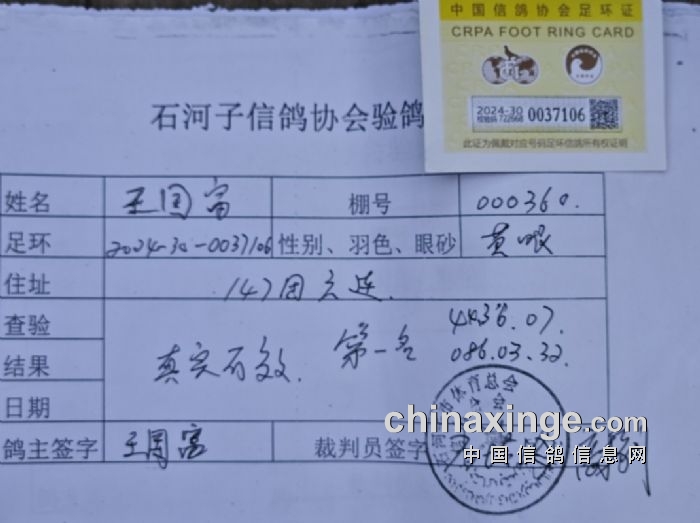 中国信鸽协会足环证
CRPA FOOT RING CARD
2024-30
校验码 722668
0037106
此证为佩戴对应号码足环信鸽所有权证明
石河子信鸽协会验鸽
姓名 王国富 棚号 000360.
足环 2024-30-0037106 性别、羽色、眼砂 黄眼
住址 147团六连.
查验 4436.07.
结果 真实有效. 第一名 086.03.32.
日期
市体育总会
鸽主签字 王国富 裁判员签字
chinaxinge.com
中国信鸽信息网